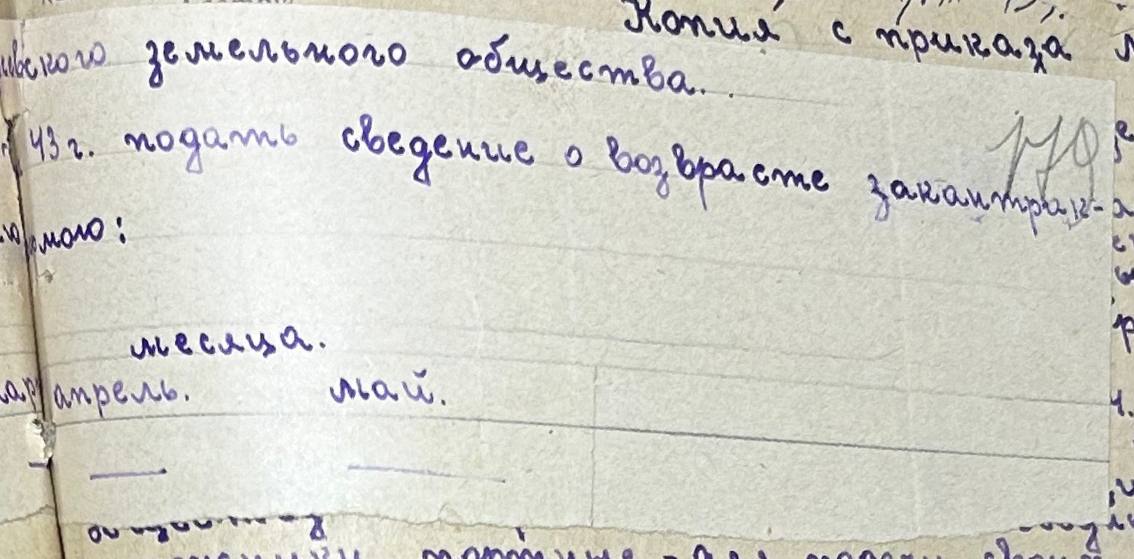 Копия с приказа
земельного общества..
43 г. подать сведение о возврасте закантрак-
мого:
119
месяца.
апрель. май.